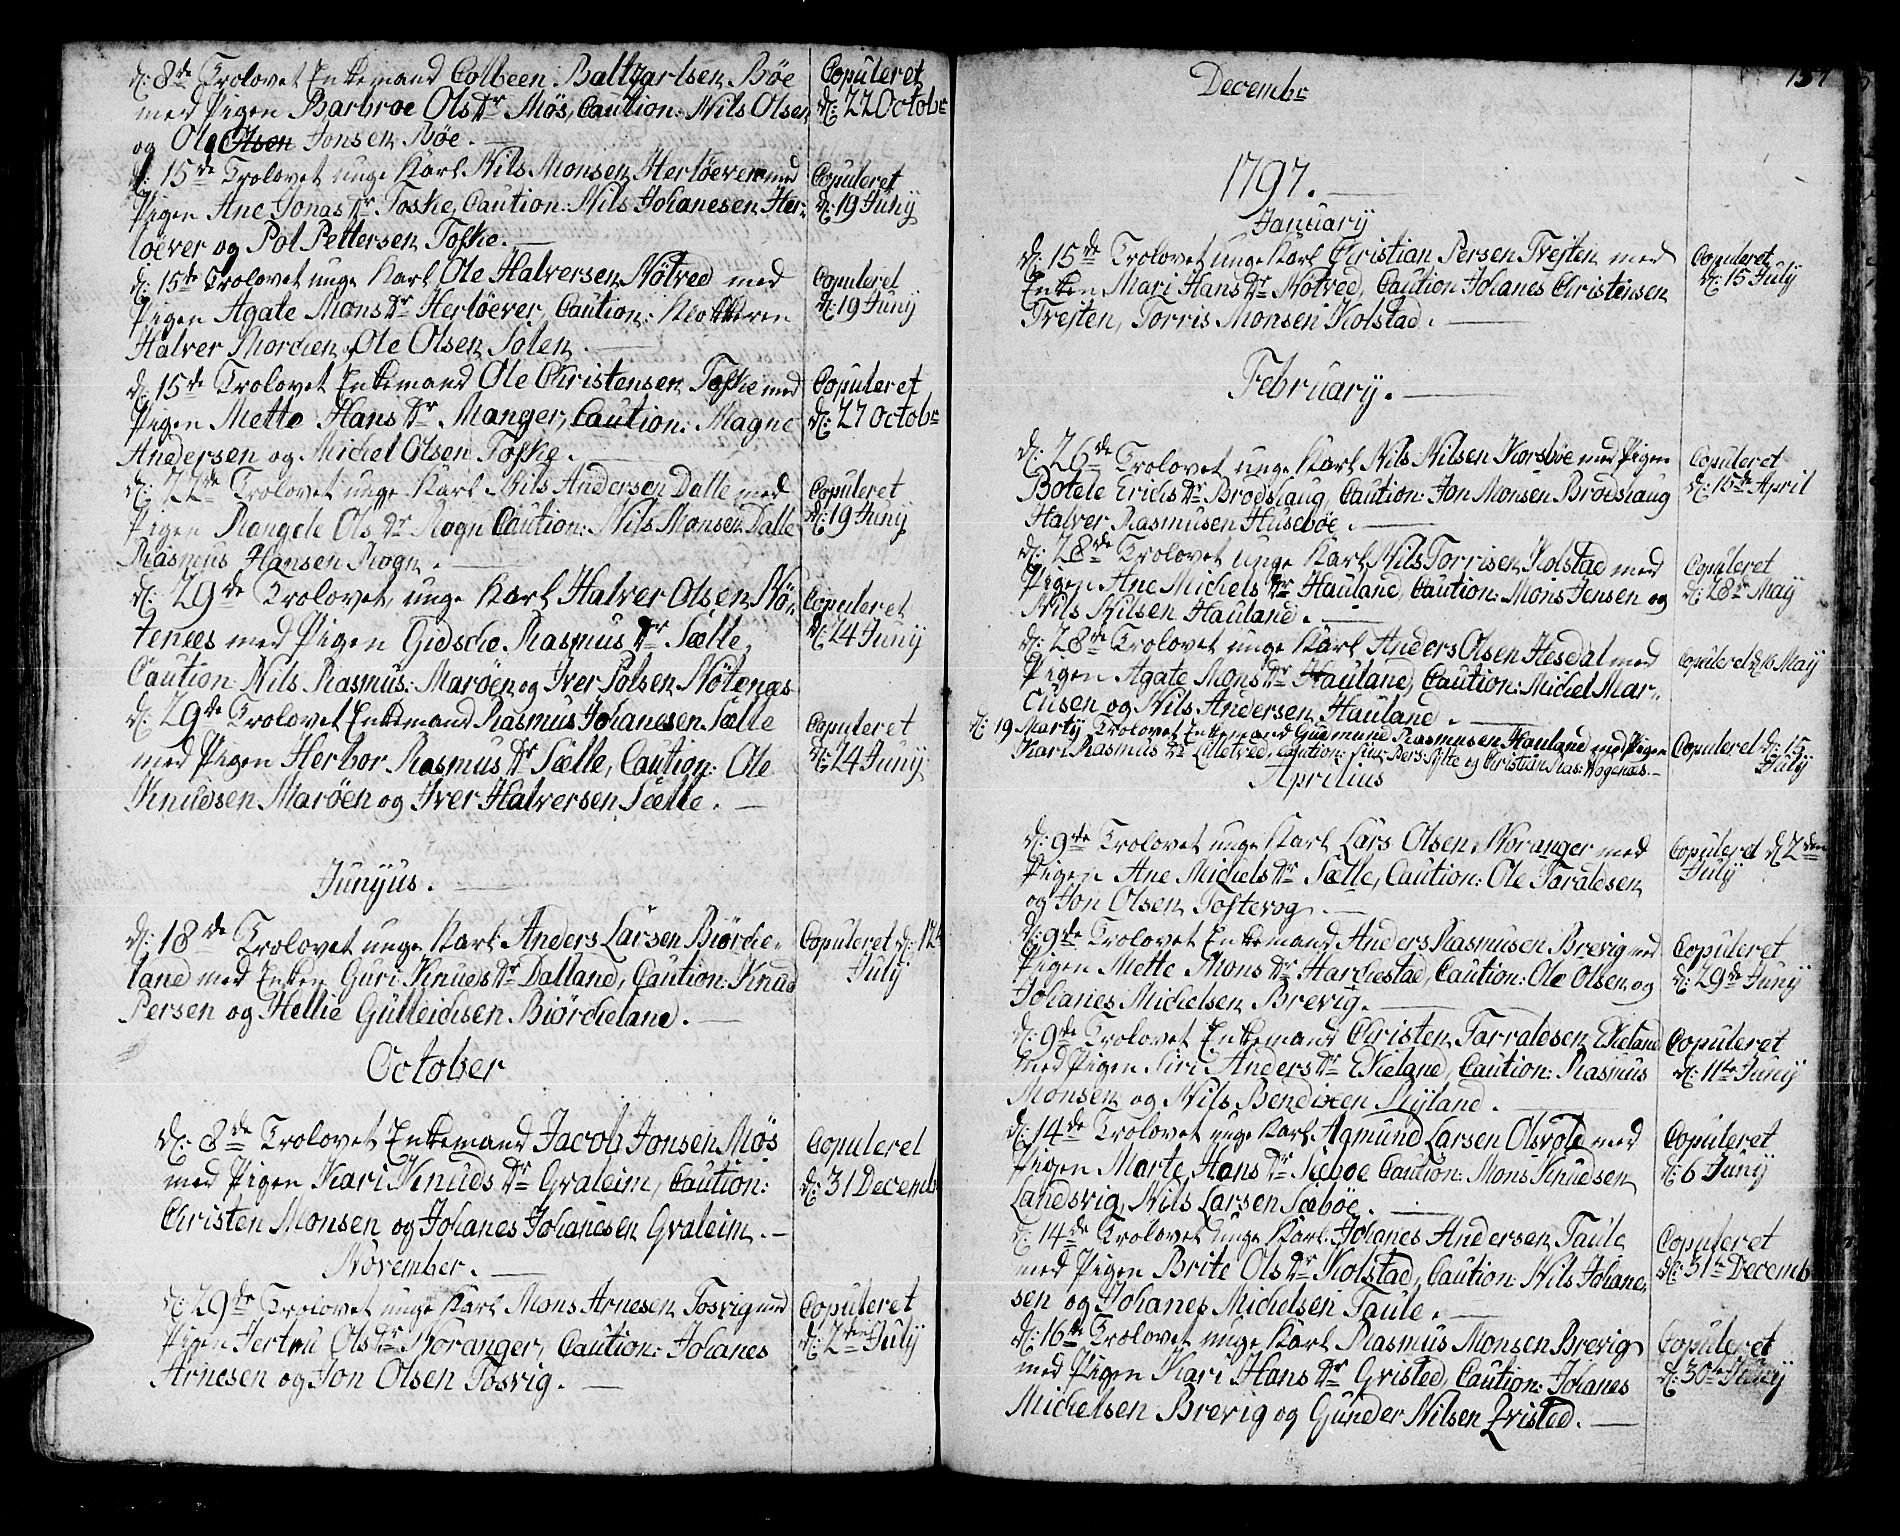 d: 8de Trolovet Enkemand Colbeen Baltzarlsen Bøe
med Pigen Barbroe Ols Dr Møs, Caution: Nils Olsen
og Ole Olsen Jonsen Bøe.
Copuleret
d: 22 Octobr
d: 15de Trolovet unge Karl Nils Monsen Herløever med
Pigen Ane Jonas Dr Toske, Caution: Nils Johanesen Her-
løever og Pol Pettersen Toske.
Copuleret
d: 19 Junÿ
d: 15de Trolovet unge Karl Ole Halversen Nøtved med
Pigen Agate Mons Dr Herløever, Caution: Klokkeren
Halver Mordien, Ole Olsen Solen.
Copuleret
d: 19 Junÿ
d: 15de Trolovet Enkemand Ole Christensen Toske med
Pigen Mette Hans Dr Manger, Caution: Magne
Andersen og Michel Olsen Toske.
Copuleret
d: 27 Octobr
d: 22de Trolovet unge Karl Nils Andersen Dalle med
Pigen Rangele Ols Dr Rogn Caution: Nils Monsen Dalle
Rasmus Hansen Rogn.
Copuleret
d: 19 Junÿ
d: 29de Trolovet unge Karl Halver Olsen Nø-
tenees med Pigen Gidsche Rasmus Dr Sælle,
Caution: Nils Rasmus: Marøen og Iver Polsen Nøtenæs
Copuleret
d: 24 Junÿ
d: 29de Trolovet Enkemand Rasmus Johanesen Sælle
med Pigen Herbor Rasmus Dr Sælle, Caution: Ole
Knudsen Marøen og Iver Halversen Sælle.
Copuleret
d: 24 Junÿ
Junÿus.
d: 18de Trolovet unge Karl Anders Larsen Biørche-
land med Enken Guri Knuds Dr Dalland, Caution: Knud
Persen og Hellie Gulleichsen Biørcheland.
Copuleret d: 12te
Julÿ
October
d: 8de Trolovet Enkemand Jacob Jonsen Møs
med Pigen Kari Knuds Dr Gvaleim, Caution:
Christen Monsen og Johanes Johanesen Gvaleim.
Copuleret
d: 31 Decemb
November.
d: 29de Trolovet unge Karl Mons Arnesen Tosvig med
Pigen Jertru Ols Dr Noranger, Caution: Johanes
Arnesen og Jon Olsen Tosvig.
Copuleret
d: 2den Julÿ
Decembr
157
1797.
Januarÿ
d: 15de Trolovet unge Karl Christian Persen Trejten med
Enken Mari Hans Dr Nøtved, Caution Johanes Christensen
Trejten, Torris Monsen Kolstad.
Copuleret
d: 15 Julÿ
Februarÿ.
d: 26de Trolovet unge Karl Nils Nilsen Korsbøe med Pigen
Botele Erichs Dr Brodshaug, Caution: Jon Monsen Brodshaug
Halver Rasmusen Husebøe.
Copuleret
d: 16de April
d: 28de Trolovet unge Karl Nils Torrisen Kolstad med
Pigen Ane Michels Dr Hauland, Caution: Mons Jensen og
Nils Nilsen Hauland.
Copuleret
d: 28de Maÿ
d: 28de Trolovet unge Karl Anders Olsen Hesdal med
Pigen Agate Mons Dr Hauland, Caution: Michel Mar-
cusen og Nils Andersen Hauland.
Copuleret d: 16 Maÿ
d: 19 Martÿ Trolovet Enkemand Gudmund Rasmusen Hauland med Pigen
Kari Rasmus Dr Liletved, Caution: Siur Pers: Sylte og Christian Ras: Wogenæs.
Copuleret d: 15
Julÿ
Aprilius
d: 9de Trolovet unge Karl Lars Olsen Noranger med
Pigen Ane Michels Dr Sælle, Caution: Ole Taralesen
og Jon Olsen Toftevog.
Copuleret d: 2den
Julÿ
d: 9de Trolovet Enkemand Anders Rasmusen Brevig med
Pigen Mette Mons Dr Harchestad, Caution: Ole Olsen og
Johanes Michelsen Brevig.
Copuleret
d: 29de Junÿ
d: 9de Trolovet Enkemand Christen Tarralesen Ekeland
med Pigen Siri Anders Dr Ekieland, Caution: Rasmus
Monsen og Nils Bendixen Ryland.
Copuleret
d: 11te Junÿ
d: 14de Trolovet unge Karl Agmund Larsen Olsvole med
Pigen Marte Hans Dr Sæboe Caution: Mons Knudsen
Landsvig, Nils Larsen Sæbøe.
Copuleret
d: 6 Junÿ
d: 14de Trolovet unge Karl: Johanes Andersen Taule
med Pigen Brite Ols Dr Kolstad, Caution: Nils Johane-
sen og Johanes Michelsen Taule.
Copuleret
d: 31te Decemb
d: 16de Trolovet unge Karl Rasmus Monsen Brevig
med Pigen Kari Hans Dr Gvisted, Caution: Johanes
Michelsen Brevig og Gunder Nilsen Qvisted.
Copuleret
d: 30te Junÿ